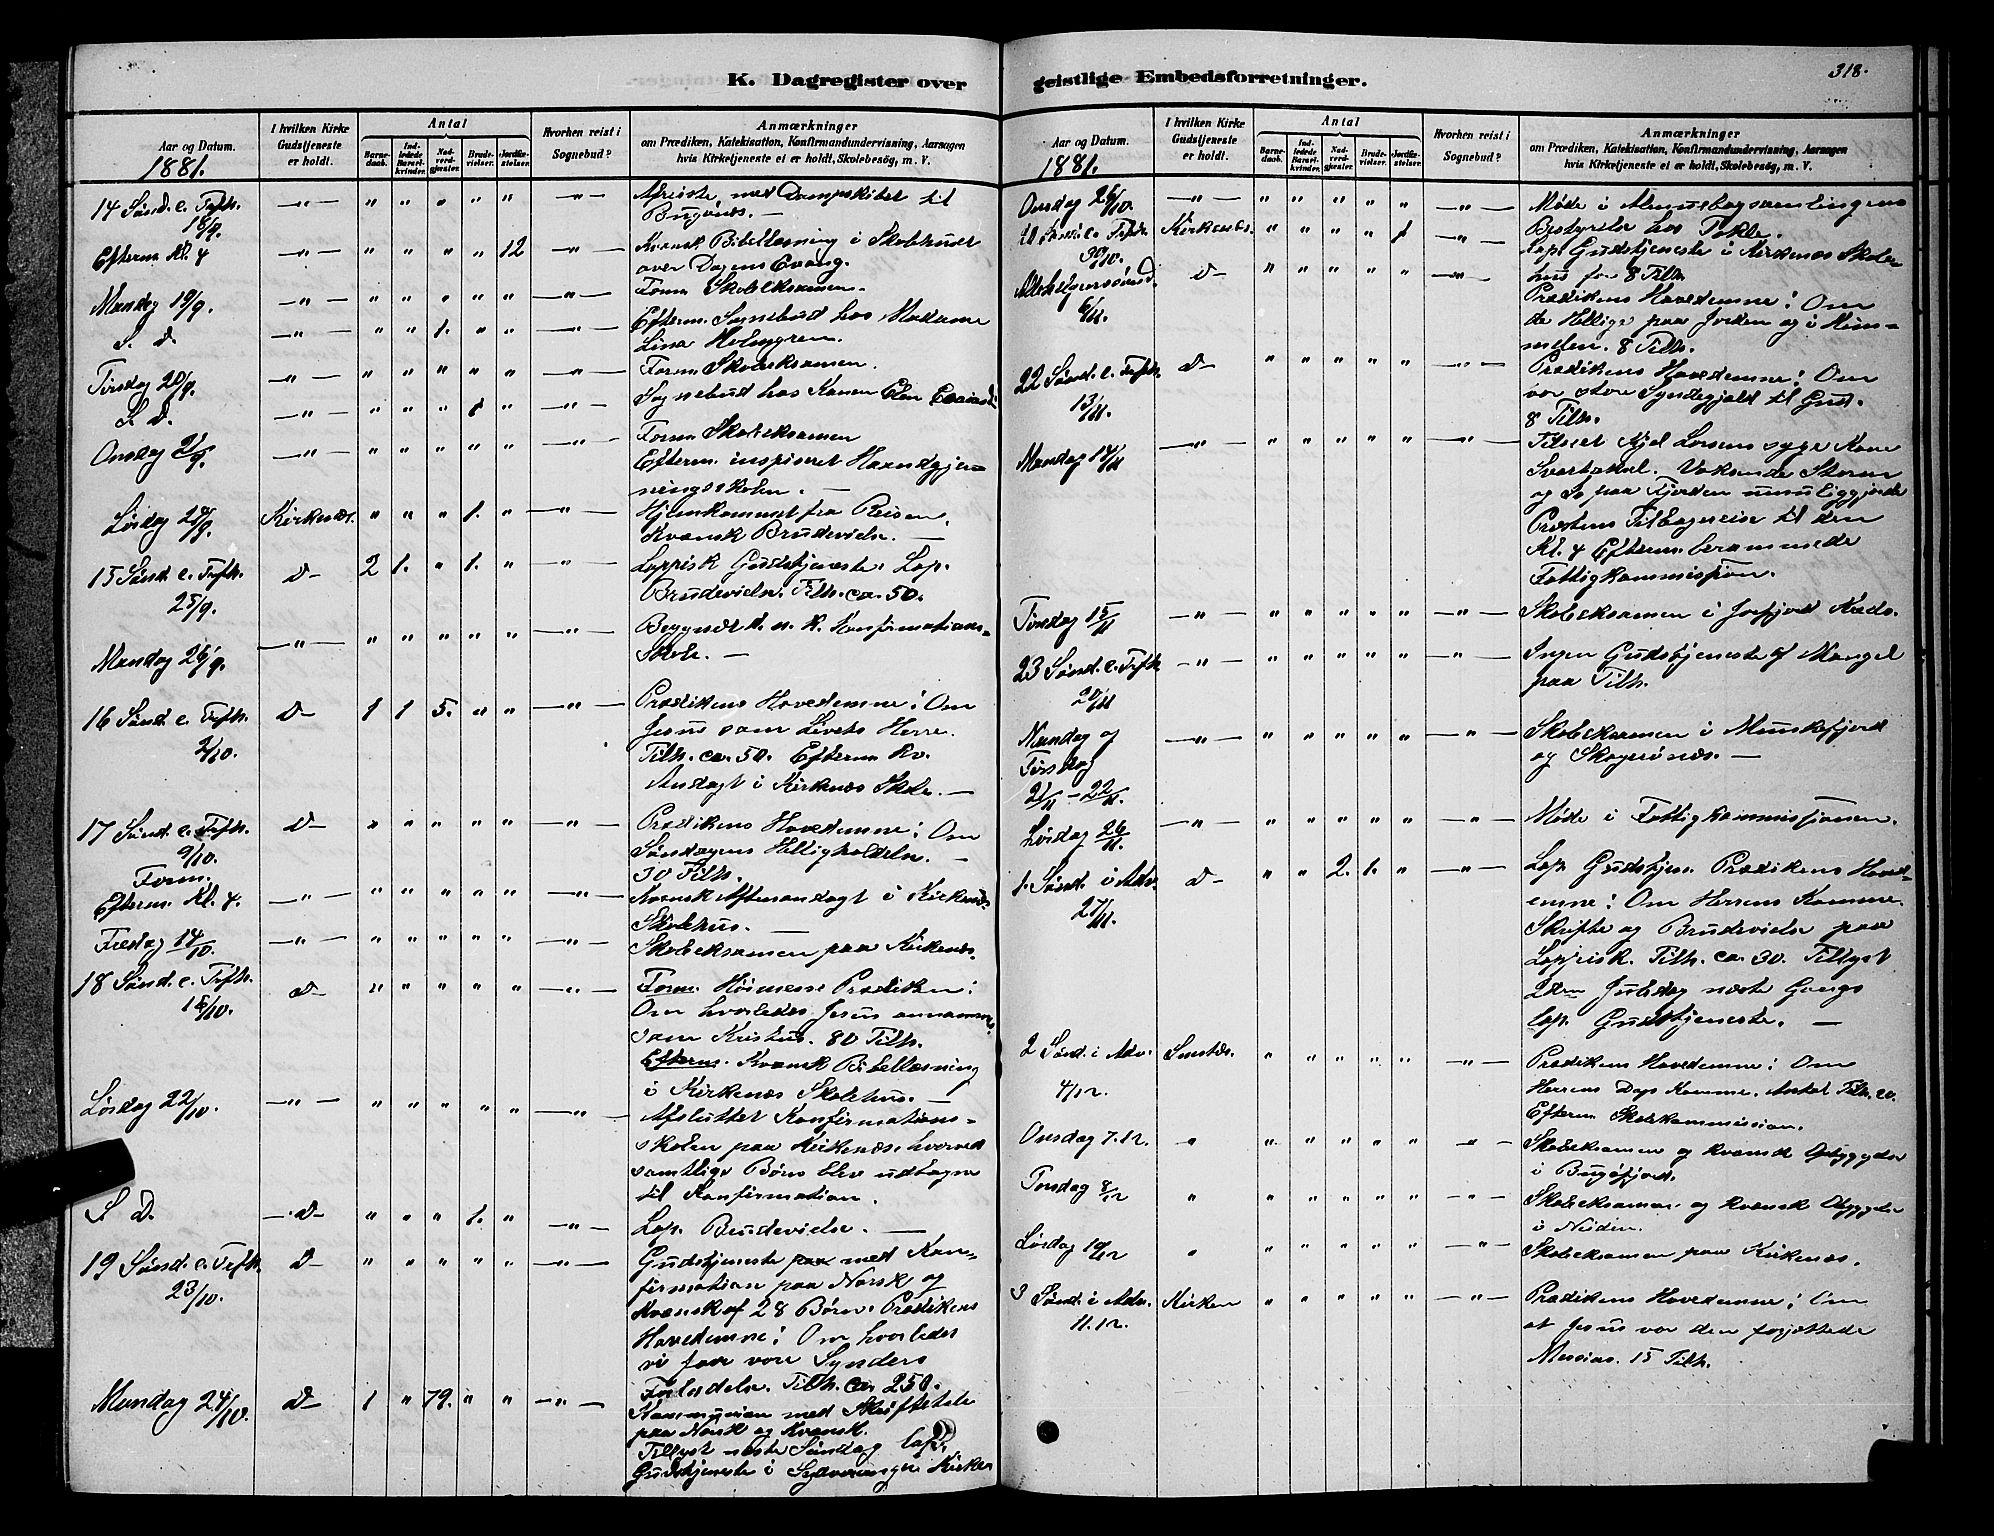 K. Dagregister over
Aar og Datum.
1881.
I hvilken Kirke Gudstjeneste er holdt.
Antal
Barne-daab.
Ind-ledede Barsel-kvinder.
Nad-verd-gjester.
Brude-vielser.
Jordfæ-stelser.
Hvorhen reist i Sognebud?
Anmærkninger
om Prædiken, Katekisation, Konfirmandundervisning, Aarsagen
hvis Kirketjeneste ei er holdt, Skolebesøg, m. V.
14 Sønd. e. Trefh. 18/9. —"— " " " " " —"— Afreiste med Dampskibet til
Bugønes. —
Efterm Kl. 4 —"— " " " " 12 —"— Kvænsk Bibellæsning i Skolehuset
over Dagens Evang.
Mandag 19/9. —"— " " " " " —"— Form Skoleksamen.
S. D. —"— " " 1. " " —"— Efterm. Sognebud hos Madame
Lina Holmgren.
Tirsdag 20/9. —"— " " " " " —"— Form Skoleksamen.
S. D. —"— " " " 1 " —"— Sognebud hos Konen Elen
Onsdag 21/9. —"— " " " " " —"— Form Skoleksamen
Efterm. inspiseret Haandgjer-
ningsskolen. —
Lørdag 24/9. Kirkenæs. " " " 1. " —"— Hjemkommet fra Reisen.
Kvænsk Brudevielse. —
15 Sønd. e. Trefh. 25/9. D- 2 1. " 1. " —"— Lappisk Gudstjeneste. Lap.
Brudevielse. Tilh. ca. 50.
Mandag 26/9. —"— " " " " " —"— Begyndt d. n. k. Konfirmations-
Skole. —
16 Sønd. e. Trefh. 2/10. D- 1 1 5. " " —"— Prædikens Hovedemne: Om
Jesus som Livets Herre.
Tilh. ca. 50. Efterm Kv.
Andagt i Kirkenæs Skole. —
17 Sønd. e. Trefh. 9/10. Form. D- " " " " " —"— Prædikens Hovedemne: Om
Søndagens Helligholdelse. —
30 Tilh.
Efterm. Kl. 4. —"— " " " " " —"— Kvænsk Aftenandagt i Kirkenæs
Skolehus. —
Fredag 14/10. —"— " " " " " Skoleksamen paa Kirkenæs.
18 Sønd. e. Trefh. 16/10. D- " " " " " —"— Form. Høimesse Prædiken:
Om hvorledes Jesus annammes
som Kristus. 80 Tilh.
Efterm. Kvænsk Bibellæsning
i Kirkenæs Skolehus. —
Lørdag 22/10. —"— " " " " " —"— Afsluttet Konfirmations-
skolen paa Kirkenæs hvorved
samtlige Børn blev udtagne
til Konfirmation.
S. D. —D- " " " 1. " —"— Lap. Brudevielse. —
19 Sønd. e. Trefh. 23/10. D- " " " " " —"— Gudstjeneste paa med Kon-
firmation paa Norsk og
Kvænsk af 28 Børn. Prædikens
Hovedemne: Om hvorledes
vi faar vore Synders
Forladelse. Tilh. ca 250.
Mandag 24/10. D- 1 " 79. " " —"— Kommunion med Skriftetale
paa Norsk og Kvænsk.
Tillyst næste Søndag lap.
Gudstjeneste i Sydvaranger Kirke
geistlige Embedsforretninger.
318.
Aar og Datum.
1881.
I hvilken Kirke Gudstjeneste er holdt.
Antal
Barne-daab.
Ind-ledede Barsel-kvinder.
Nad-verd-gjester.
Brude-vielser.
Jordfæ-stelser.
Hvorhen reist i Sognebud?
Anmærkninger
om Prædiken, Katekisation, Konfirmandundervisning, Aarsagen
hvis Kirketjeneste ei er holdt, Skolebesøg, m. V.
Onsdag 26/10. —"— " " " " " —"— Møde i Almuebogsamlingens
Bestyrelse hos Tokle.
20 Sønd. e. Trefh. 30/10. Kirkenæs. " " " " 1 —"— Lap. Gudstjeneste i Kirkenæs Skole-
hus for 8 Tilh.
Allehelgenssønd. 6/11. D- " " " " " —"— Prædikens Hovedemne: Om
de Hellige paa Jorden og i Him-
melen. 8 Tilh.
22 Sønd. e. Trefh. 13/11. D- " " " " " —"— Prædikens Hovedemne: Om
vor store Syndegjæld til Gud.
8 Tilh.
Mandag 14/11 —"— " " " " " —"— Tilseet Kjel Larsens syge Kone
Svartaksel. Voksende Storm
og Is paa Fjorden umuliggjorde
Prestens Tilbagereise til den
Kl. 4 Efterm. berammede
Fattigkommission.
Tirsdag 15/11 —"— " " " " " —"— Skoleksamen i Jarfjord Kreds.
23 Sønd. e. Trefh 20/11 —"— " " " " " —"— Ingen Gudstjeneste af Mangel
paa Tilh.
Mandag og
Tirsdag
21/11 – 22/11. —"— " " " " " —"— Skoleksamen i Munkefjord
og Skogerønæs. —
Lørdag 26/11. —"— " " " " " —"— Møde i Fattigkommissionen.
1. Sønd. i Adv. 27/11. D- " " 2. 1. " —"— Lap. Gudstjen. Prædikens Hoved-
emne: Om Herrens Komme.
Skrifte og Brudevielse paa
Lappisk. Tilh. ca. 30. Tillyst
2den Juledag næste Gangs
lap. Gudstjeneste. —
2 Sønd. i Adv. 4/12. " " " " " —"— Prædikens Hovedemne: Om
Herrens Dags Komme. Antal Tilh. 20.
Efterm Skolekommission.
Onsdag 7.12. " " " " " " —"— Skoleksamen og kvænsk Opbyggelse
i Bugøfjord.
Torsdag 8/12 " " " " " " —"— Skoleksamen og kvænsk Opbyggelse
i Neiden.
Lørdag 10/12 " " " " " " —"— Skoleksamen paa Kirkenæs.
3 Sønd. i Adv. 11.12. Kirken " " " " " —"— Prædikens Hovedemne: Om
at Jesus var den forjættede
Messias. 15 Tilh.